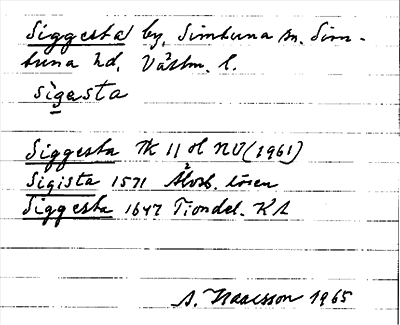 Siggesta by, Simtuna sn. Sim-
tuna hd, Västm. l.
sìgesta
Siggesta TK 11 H NV (1961)
Sigista 1571 Älvsb. lösen
Siggesta 1647 Tiondel. KA
A. Isaacsson 1965